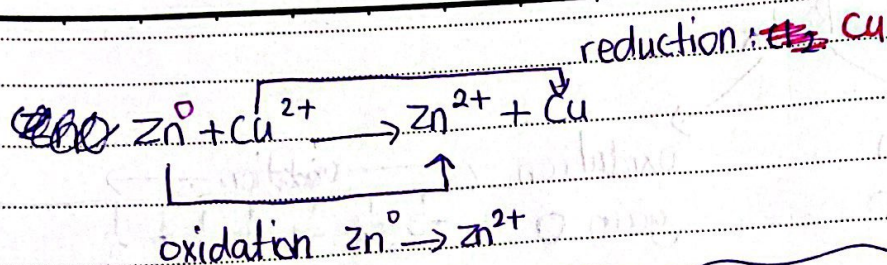 reduction: Cu
Zn⁰ + Cu²⁺ → Zn²⁺ + Cu
oxidation Zn⁰ → Zn²⁺